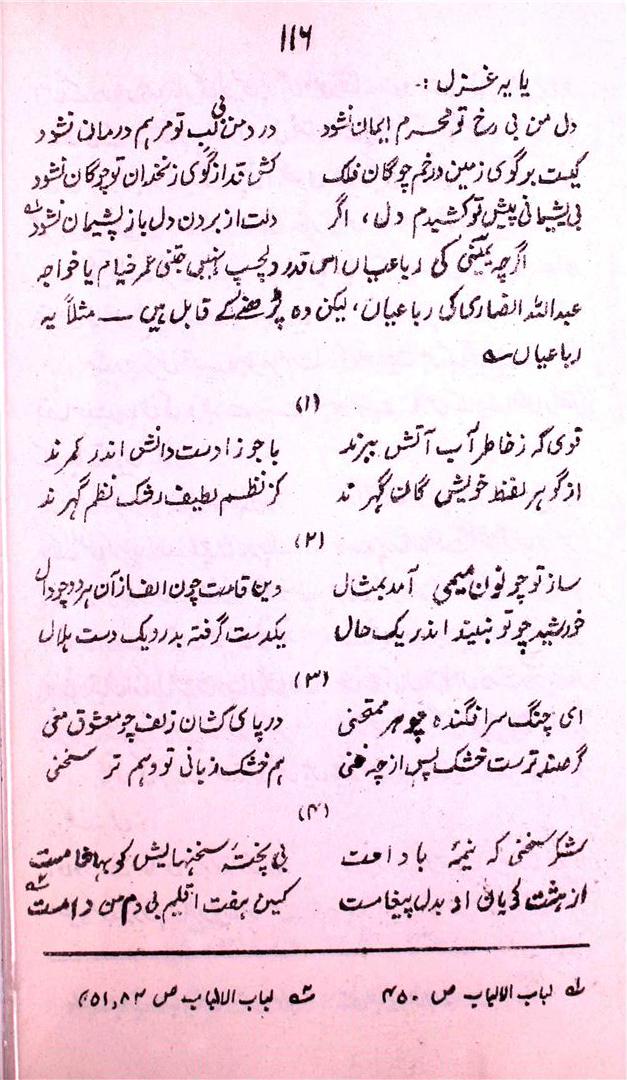 ۱۱۶
یا یہ غزل :-
دل من بی رخ تو محرم ایمان نشود    درد من بی لب تو مرہم درمانی نشود
کیست بر گوی زمین در خم چوگان فلک    کش قد از گوی زنخدان تو چوگان نشود
بی پشیمانی پیش تو کشیدم دل ، اگر    دلت از بردن دل باز پشیمان نشود ؎۱
اگرچہ کی رباعیاں اس قدر دلچسپ نہیں جتنی عمر خیام یا خواجہ
عبداللہ انصاری کی رباعیاں، لیکن وہ پڑھنے کے قابل ہیں — مثلاً یہ
رباعیاں ؎
(۱)
قومی کہ ز خاطر آب آتش ببرند    با جوزا دست دانش اندر کمرند
از گوہر لفظ خویش کان گہرند    کز نظم لطیف رشک نظم گہرند
(۲)
ساز تو چو نون میمی آمد بمثال    وین قامت چون الف از آن ہر دو چو دال
خورشید چو تو نبیند اندر یک حال    یکدست گرفتہ بدر و یک دست ہلال
(۳)
ای چنگ سر افگندہ چو ہر ممتحنی    در پای کشان زلف چو معشوق منی
گر صد ترست خشک پس از چہ فنی    ہم خشک زبانی تو و ہم تر سخنی
(۴)
شکر سخنی کہ نیمۂ بادامست    بی پختۂ سخنہایش کو بہا خامست
از ہشت او بدل پیغامست    کین ہفت اقلیم بی دم من دامست ؎۲
؎۱ لباب الالباب ص ۴۵۰    ؎۲ لباب الالباب ص ۸۳ , ۴۵۱